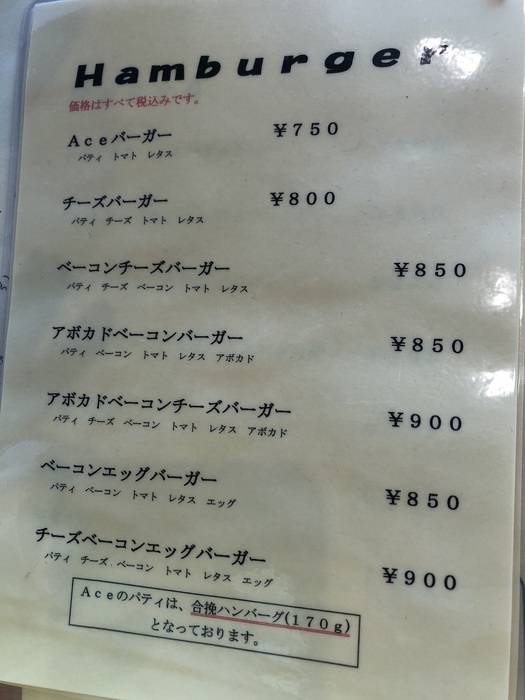 Hamburger
価格はすべて税込みです。
Aceバーガー ￥750
パティ トマト レタス
チーズバーガー ￥800
パティ チーズ トマト レタス
ベーコンチーズバーガー ￥850
パティ チーズ ベーコン トマト レタス
アボカドベーコンバーガー ￥850
パティ ベーコン トマト レタス アボカド
アボカドベーコンチーズバーガー ￥900
パティ チーズ ベーコン トマト レタス アボカド
ベーコンエッグバーガー ￥850
パティ ベーコン トマト レタス エッグ
チーズベーコンエッグバーガー ￥900
パティ チーズ ベーコン トマト レタス エッグ
Aceのパティは、合挽ハンバーグ(170g)
となっております。